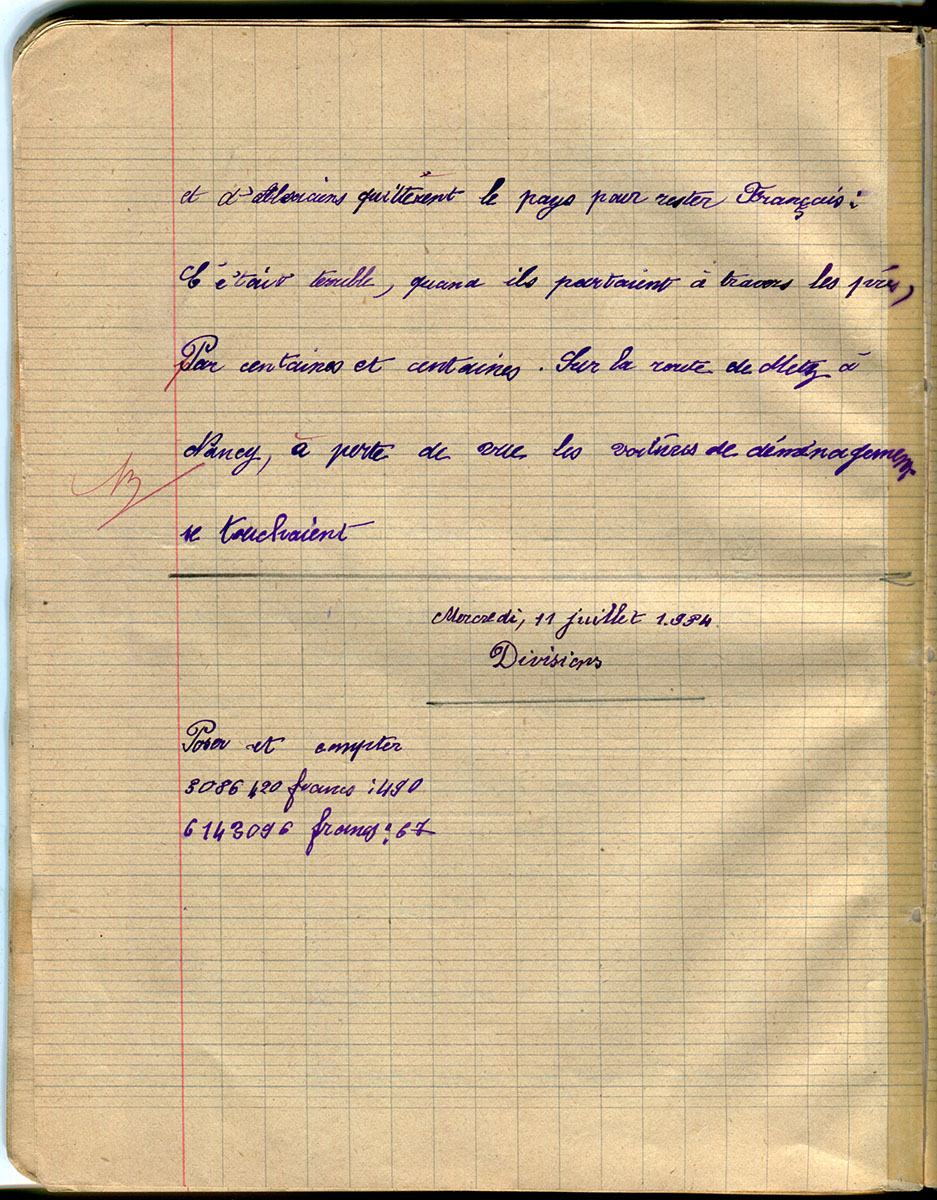 et d'Alsaciens quittèrent le pays pour rester Français:
C'était terrible, quand ils partaient à travers les prés,
Par centaines et centaines. Sur la route de Metz à
Nancy, à perte de vue les voitures de déménagement
se touchaient
Mercredi, 11 juillet 1.934
Divisions
Poser et compter
3086420 francs : 490
6143096 francs : 67